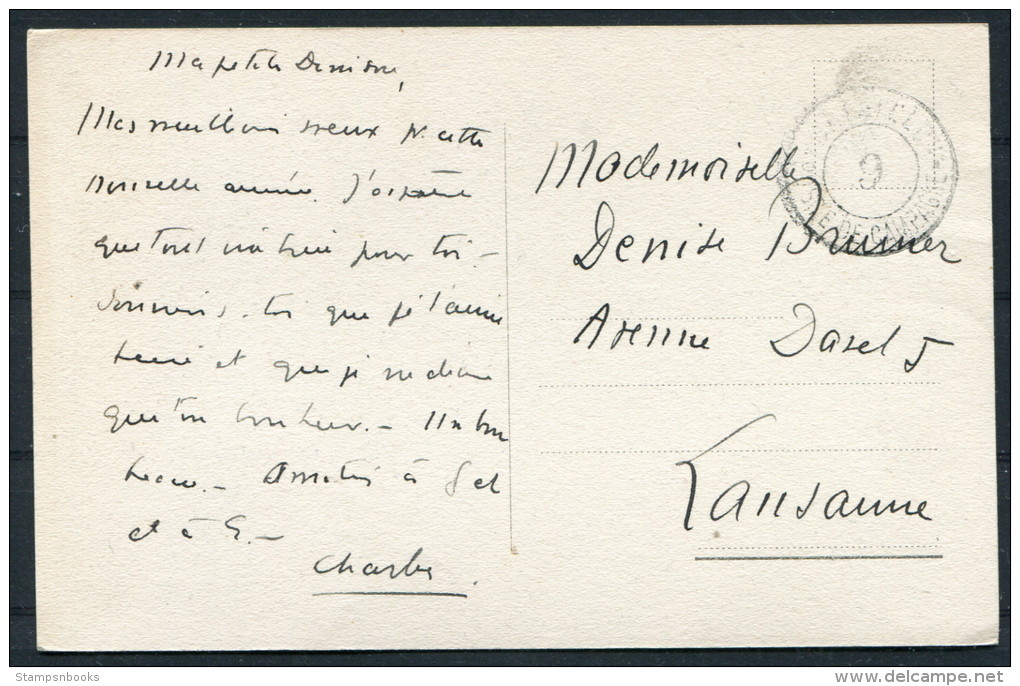 Ma petite Denise,
Mes meilleurs vœux pr cette
nouvelle année. J'espère
que tout ira bien pour toi –
Souviens-toi que je t'aime
et que je ne désire
que ton bonheur. – Un bon
Amitiés à
et à
Charles
9
POSTE DE CAMPAGNE
Mademoiselle
Denise Brunner
Avenue Davel 5
Lausanne
Stampsnbooks
delcampe.net